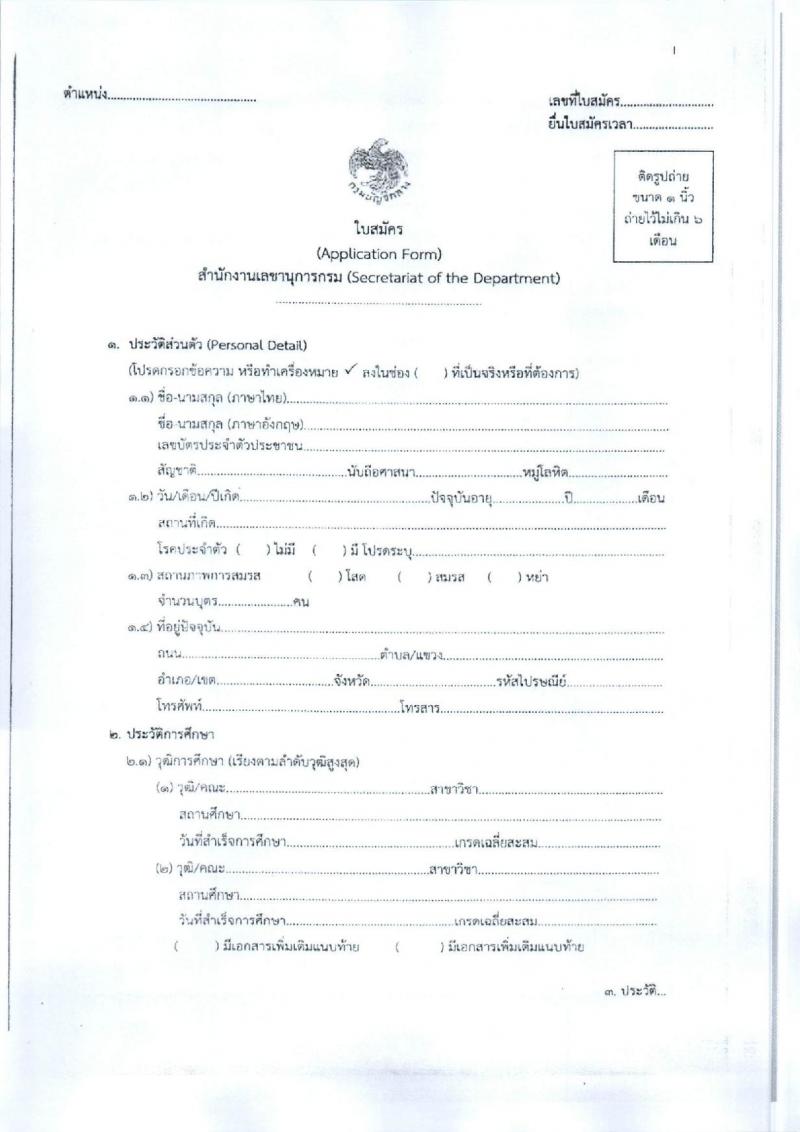 ตำแหน่ง............................................
เลขที่ใบสมัคร............................
ยื่นใบสมัครเวลา........................
กรมบัญชีกลาง
ติดรูปถ่าย
ขนาด ๑ นิ้ว
ถ่ายไว้ไม่เกิน ๖
เดือน
ใบสมัคร
(Application Form)
สำนักงานเลขานุการกรม (Secretariat of the Department)
............................................................
๑. ประวัติส่วนตัว (Personal Detail)
(โปรดกรอกข้อความ หรือทำเครื่องหมาย ✓ ลงในช่อง ( ) ที่เป็นจริงหรือที่ต้องการ)
๑.๑) ชื่อ-นามสกุล (ภาษาไทย)............................................................
ชื่อ-นามสกุล (ภาษาอังกฤษ)............................................................
เลขบัตรประจำตัวประชาชน............................................................
สัญชาติ................................นับถือศาสนา................................หมู่โลหิต............................
๑.๒) วัน/เดือน/ปีเกิด............................................ปัจจุบันอายุ....................ปี....................เดือน
สถานที่เกิด............................................................
โรคประจำตัว ( ) ไม่มี ( ) มี โปรดระบุ............................................................
๑.๓) สถานภาพการสมรส ( ) โสด ( ) สมรส ( ) หย่า
จำนวนบุตร......................คน
๑.๔) ที่อยู่ปัจจุบัน............................................................
ถนน............................................ตำบล/แขวง............................................
อำเภอ/เขต................................จังหวัด................................รหัสไปรษณีย์............................
โทรศัพท์............................................โทรสาร............................................
๒. ประวัติการศึกษา
๒.๑) วุฒิการศึกษา (เรียงตามลำดับวุฒิสูงสุด)
(๑) วุฒิ/คณะ............................................สาขาวิชา............................................
สถานศึกษา............................................................
วันที่สำเร็จการศึกษา............................................เกรดเฉลี่ยสะสม................................
(๒) วุฒิ/คณะ............................................สาขาวิชา............................................
สถานศึกษา............................................................
วันที่สำเร็จการศึกษา............................................เกรดเฉลี่ยสะสม................................
( ) มีเอกสารเพิ่มเติมแนบท้าย ( ) มีเอกสารเพิ่มเติมแนบท้าย
๓. ประวัติ...